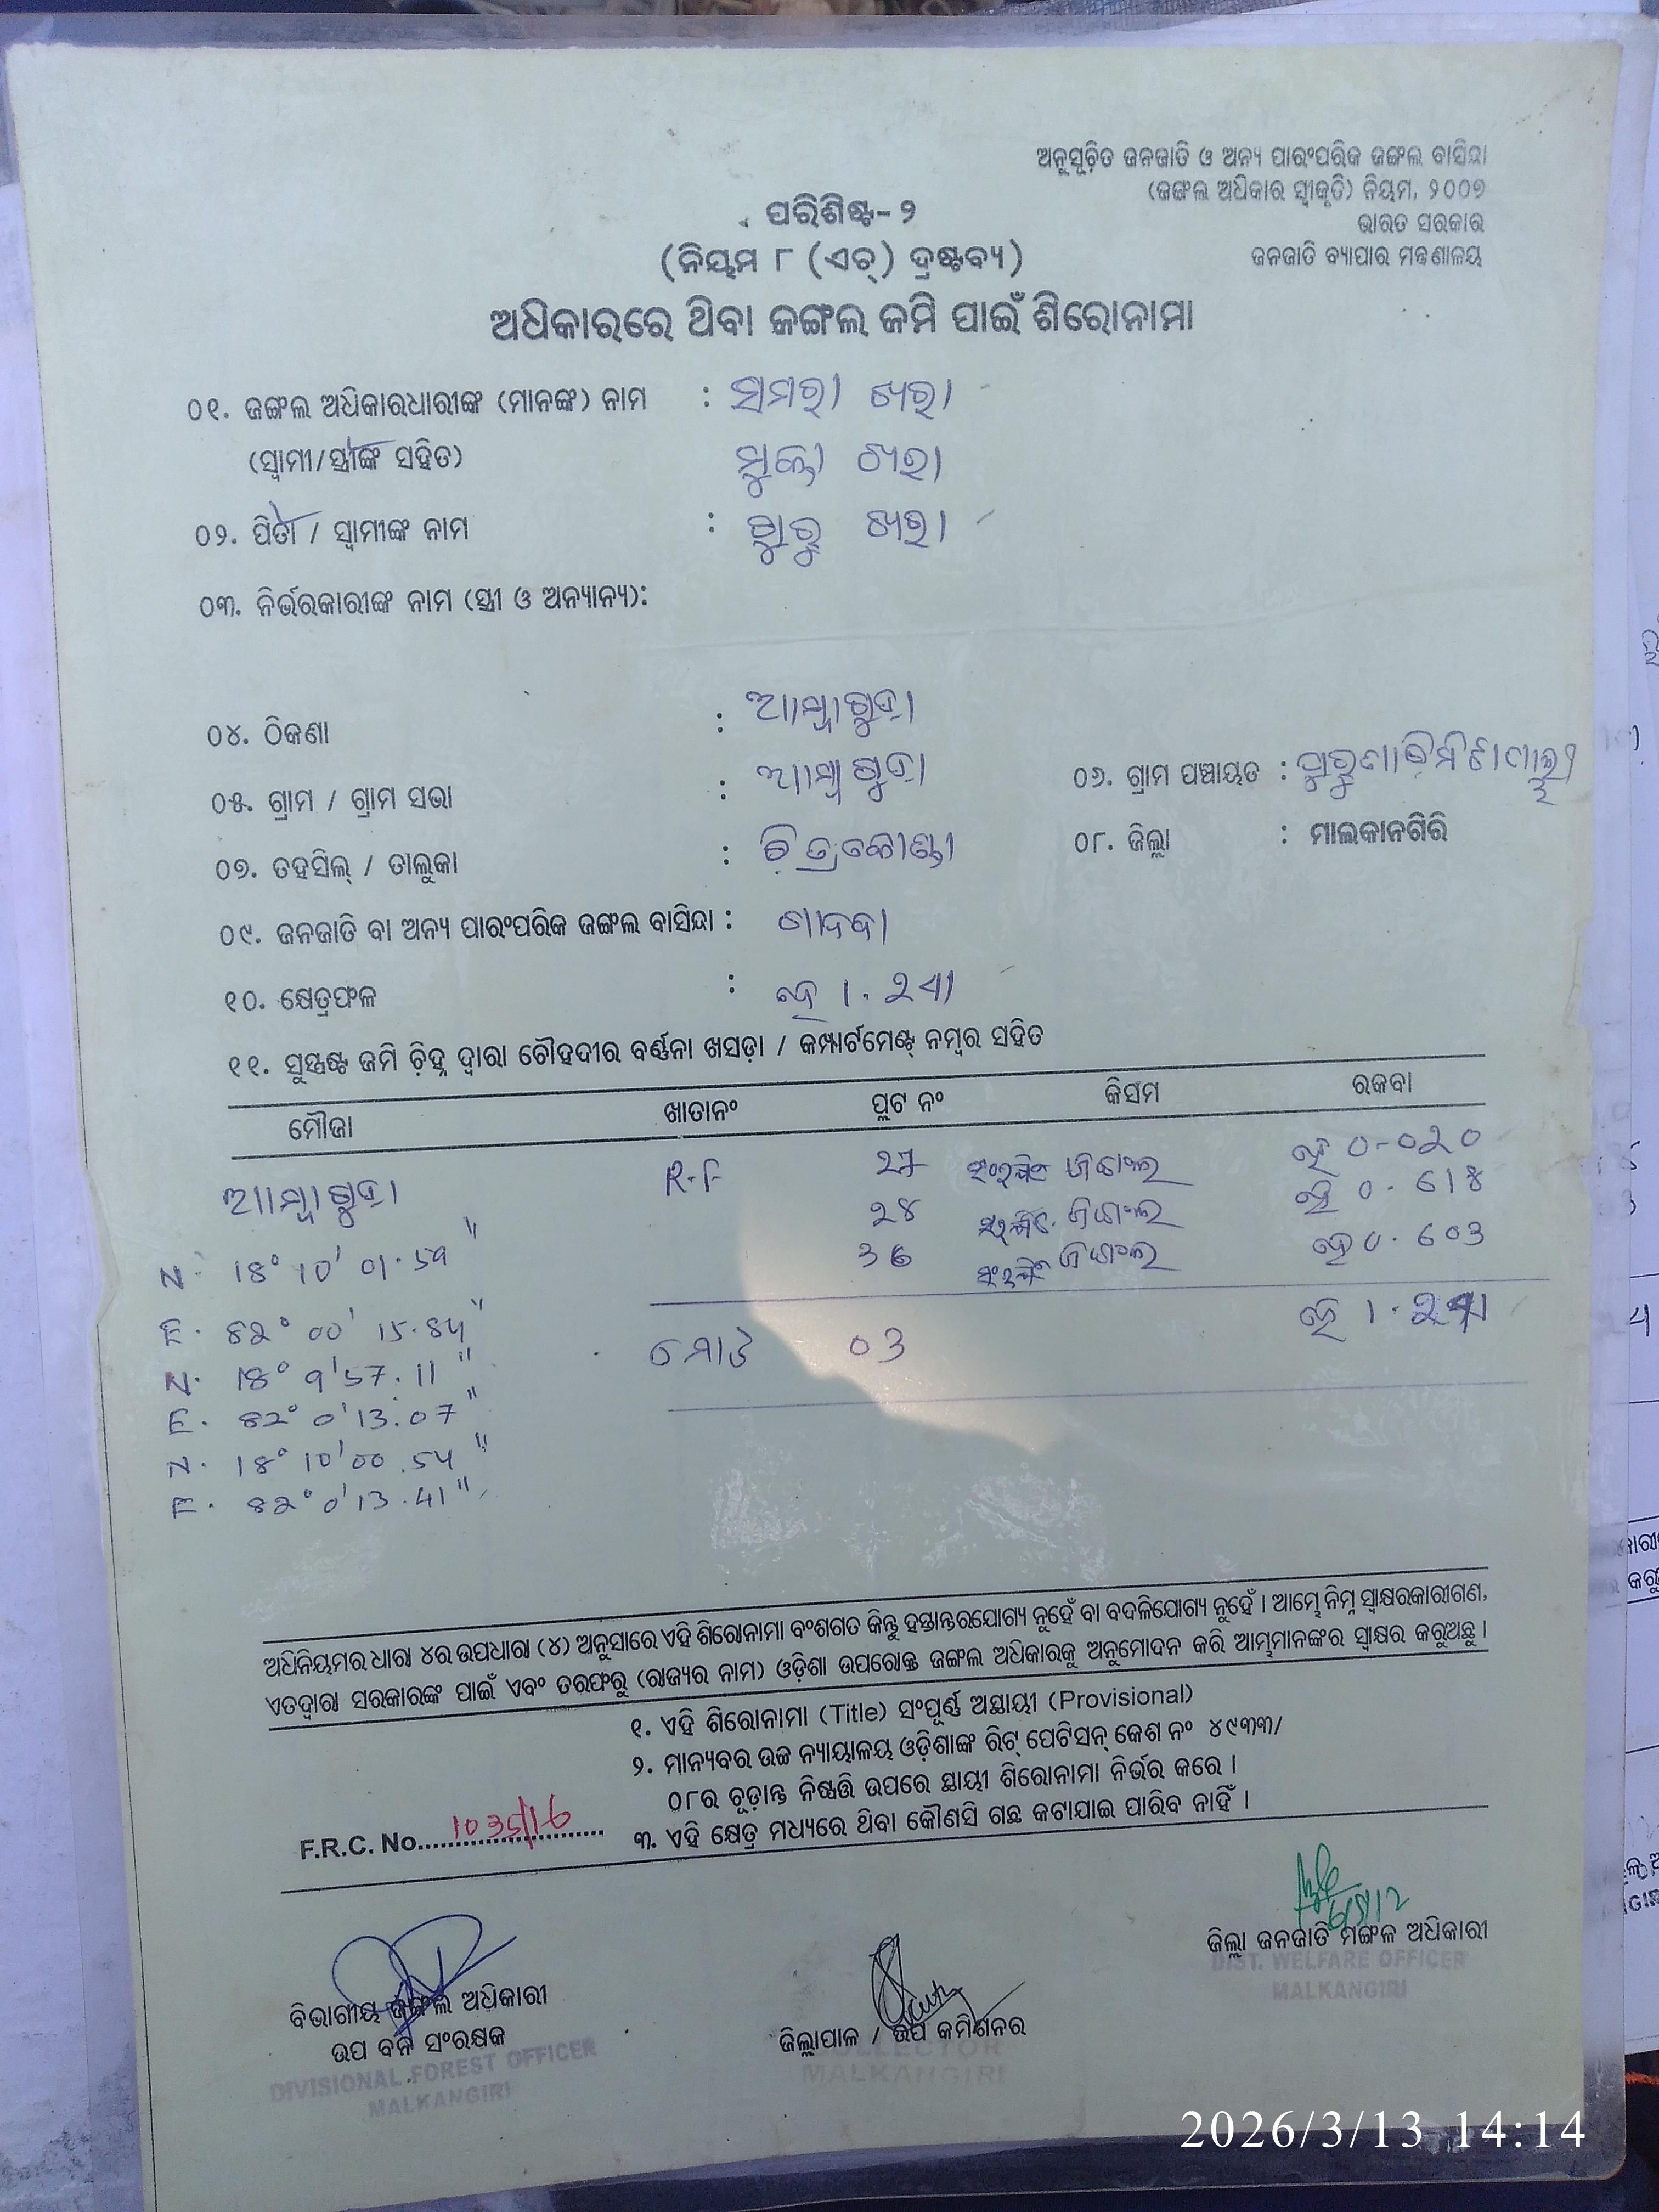 ଅନୁସୂଚିତ ଜନଜାତି ଓ ଅନ୍ୟ ପାରଂପରିକ ଜଙ୍ଗଲ ବାସିନ୍ଦା
(ଜଙ୍ଗଲ ଅଧିକାର ସ୍ୱୀକୃତି) ନିୟମ, ୨୦୦୭
ଭାରତ ସରକାର
ଜନଜାତି ବ୍ୟାପାର ମନ୍ତ୍ରଣାଳୟ
ପରିଶିଷ୍ଟ-୨
(ନିୟମ ୮ (ଏଚ୍) ଦ୍ରଷ୍ଟବ୍ୟ)
ଅଧିକାରରେ ଥିବା ଜଙ୍ଗଲ ଜମି ପାଇଁ ଶିରୋନାମା
୦୧. ଜଙ୍ଗଲ ଅଧିକାରଧାରୀଙ୍କ (ମାନଙ୍କ) ନାମ : ସମରୀ ଖରା
(ସ୍ୱାମୀ/ସ୍ତ୍ରୀଙ୍କ ସହିତ) ଖରା
୦୨. ପିତା / ସ୍ୱାମୀଙ୍କ ନାମ : ଖରା
୦୩. ନିର୍ଭରକାରୀଙ୍କ ନାମ (ସ୍ତ୍ରୀ ଓ ଅନ୍ୟାନ୍ୟ):
୦୪. ଠିକଣା : ଆମ୍ବାଗୁଡା
୦୫. ଗ୍ରାମ / ଗ୍ରାମ ସଭା : ଆମ୍ବାଗୁଡା ୦୬. ଗ୍ରାମ ପଞ୍ଚାୟତ :
୦୭. ତହସିଲ୍ / ତାଲୁକା : ଚିତ୍ରକୋଣ୍ଡା ୦୮. ଜିଲ୍ଲା : ମାଲକାନଗିରି
୦୯. ଜନଜାତି ବା ଅନ୍ୟ ପାରଂପରିକ ଜଙ୍ଗଲ ବାସିନ୍ଦା : ଗାଦବା
୧୦. କ୍ଷେତ୍ରଫଳ : ହେ 1.241
୧୧. ସୁସ୍ପଷ୍ଟ ଜମି ଚିହ୍ନ ଦ୍ୱାରା ଚୌହଦୀର ବର୍ଣ୍ଣନା ଖସଡ଼ା / କମ୍ପାର୍ଟମେଣ୍ଟ୍ ନମ୍ବର ସହିତ
ମୌଜା ଖାତାନଂ ପ୍ଲଟ ନଂ କିସମ ରକବା
ଆମ୍ବାଗୁଡା R.F 27 ସଂରକ୍ଷିତ ଜଙ୍ଗଲ ହେ 0-020
28 ସଂରକ୍ଷିତ ଜଙ୍ଗଲ ହେ 0.618
36 ସଂରକ୍ଷିତ ଜଙ୍ଗଲ ହେ 0.603
ମୋଟ 03 ହେ 1.241
N. 18° 10' 01.59"
E. 82° 00' 15.84"
N. 18° 9' 57.11"
E. 82° 0' 13.07"
N. 18° 10' 00.54"
E. 82° 0' 13.41"
ଅଧିନିୟମର ଧାରା ୪ର ଉପଧାରା (୪) ଅନୁସାରେ ଏହି ଶିରୋନାମା ବଂଶଗତ କିନ୍ତୁ ହସ୍ତାନ୍ତରଯୋଗ୍ୟ ନୁହେଁ ବା ବଦଳିଯୋଗ୍ୟ ନୁହେଁ । ଆମ୍ଭେ ନିମ୍ନ ସ୍ୱାକ୍ଷରକାରୀଗଣ,
ଏତଦ୍ୱାରା ସରକାରଙ୍କ ପାଇଁ ଏବଂ ତରଫରୁ (ରାଜ୍ୟର ନାମ) ଓଡ଼ିଶା ଉପରୋକ୍ତ ଜଙ୍ଗଲ ଅଧିକାରକୁ ଅନୁମୋଦନ କରି ଆମ୍ଭମାନଙ୍କର ସ୍ୱାକ୍ଷର କରୁଅଛୁ ।
୧. ଏହି ଶିରୋନାମା (Title) ସଂପୂର୍ଣ୍ଣ ଅସ୍ଥାୟୀ (Provisional)
୨. ମାନ୍ୟବର ଉଚ୍ଚ ନ୍ୟାୟାଳୟ ଓଡ଼ିଶାଙ୍କ ରିଟ୍ ପେଟିସନ୍ କେଶ ନଂ ୪୯୩୩/
୦୮ର ଚୂଡ଼ାନ୍ତ ନିଷ୍ପତ୍ତି ଉପରେ ସ୍ଥାୟୀ ଶିରୋନାମା ନିର୍ଭର କରେ ।
୩. ଏହି କ୍ଷେତ୍ର ମଧ୍ୟରେ ଥିବା କୌଣସି ଗଛ କଟାଯାଇ ପାରିବ ନାହିଁ ।
F.R.C. No. 1035/16
ଜିଲ୍ଲା ଜନଜାତି ମଙ୍ଗଳ ଅଧିକାରୀ
DIST. WELFARE OFFICER
MALKANGIRI
ବିଭାଗୀୟ ଜଙ୍ଗଲ ଅଧିକାରୀ
ଉପ ବନ ସଂରକ୍ଷକ
DIVISIONAL FOREST OFFICER
MALKANGIRI
ଜିଲ୍ଲାପାଳ / ଉପ କମିଶନର
COLLECTOR
MALKANGIRI
2026/3/13 14:14